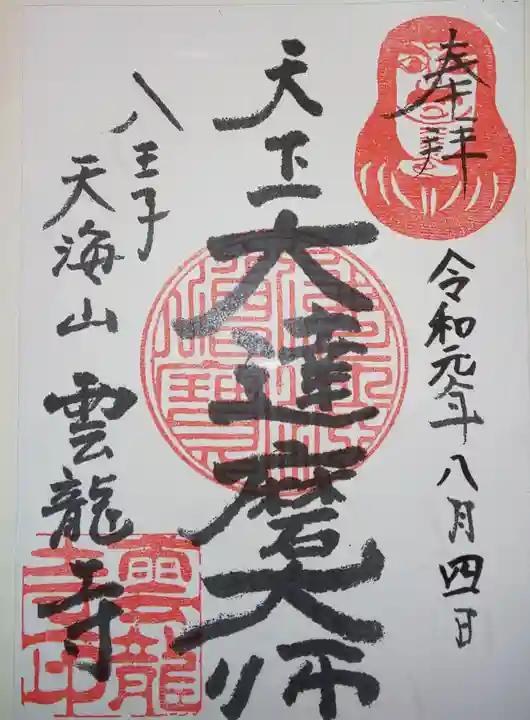 奉拝
令和元年八月四日
天下一
大達磨大師
八王子
天海山
雲龍寺
雲龍
寺印